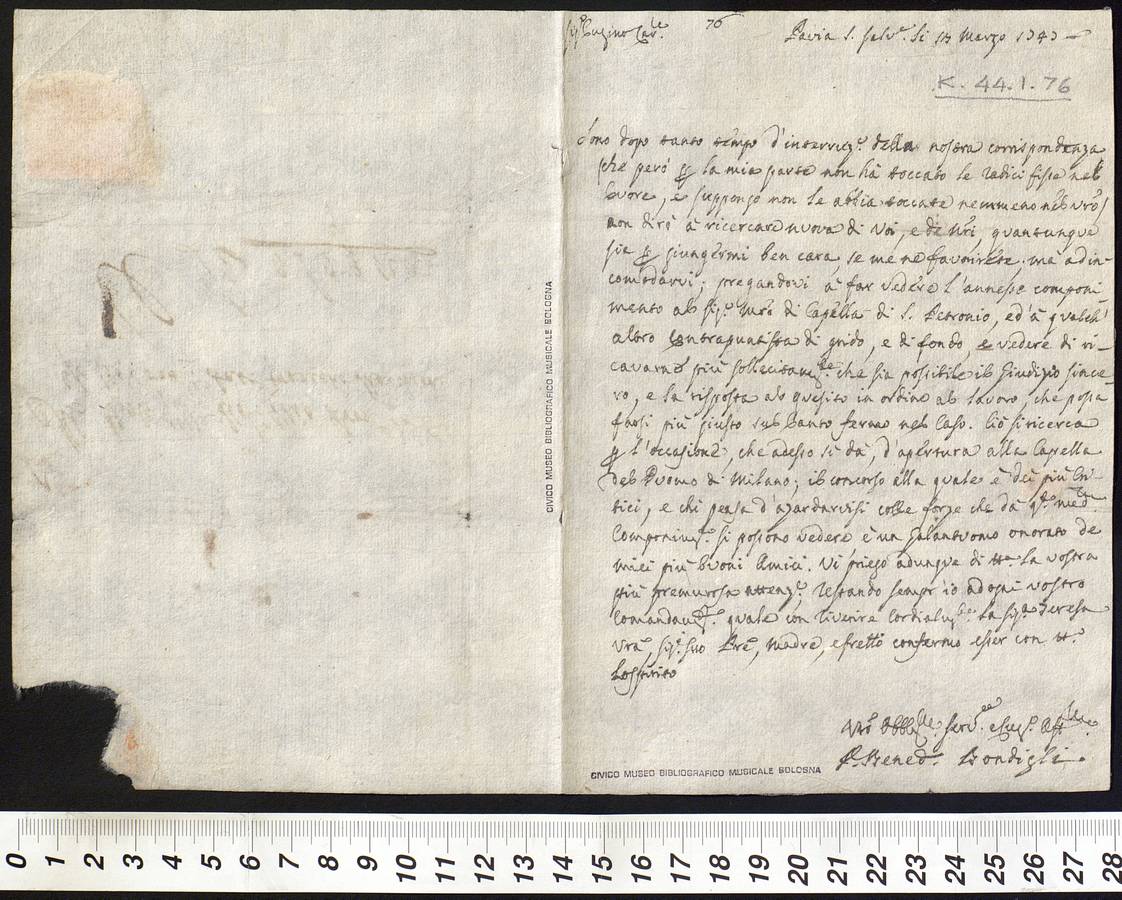 Sig.r Cugino Car.le
76
Pavia S. Salv.e li 14 Marzo 1747
K. 44. 1. 76
Sono dopo tanto tempo d'interruz.e della nostra corrispondenza
che però p la mia parte non hà toccato le radici fisse nel
Cuore, e suppongo non le abbia toccate nemmeno nel vrõ,
non dirò à ricercare nuova di Voi, e de Vri, quantunque
sia p giungermi ben cara, se me ne favorirete. ma ad in-
comodarvi; pregandovi à far vedere l'annesso componi-
mento al Sig.r Mrõ di Capella di S. Petronio, ed à qualch'
altro Contrapuntista di grido, e di fondo, e vedere di ri-
cavarne più sollecitam.te che sia possibile il Giudizio since-
ro, e la risposta al quesito in ordine al lavoro, che possa
farsi più giusto sul Canto fermo nel Caso. Ciò si ricerca
p l'occasione, che adesso si dà, d'apertura alla Capella
del Duomo di Milano; il concorso alla quale è dei più Cri-
tici, e chi pensa d'azardarvisi colle forze che dà q.to med.o
Componim.to si possono vedere è un galantuomo onorato de
miei più buoni Amici. Vi priego adunque di tta la vostra
più premurosa attenz.e restando sempr'io ad ogni vostro
Comandam.to quale con riverire Cordialm.te la Sig.ra Teresa
Vrã, Sig.r suo Prẽ, Madre, e frẽtti confermo esser con tt.o
Lo spirito
Vrõ Obblig.mo Serv.e e Cug.o Aff.mo
D. Bened.o Bondigli.
CIVICO MUSEO BIBLIOGRAFICO MUSICALE BOLOGNA
CIVICO MUSEO BIBLIOGRAFICO MUSICALE BOLOGNA
0 1 2 3 4 5 6 7 8 9 10 11 12 13 14 15 16 17 18 19 20 21 22 23 24 25 26 27 28